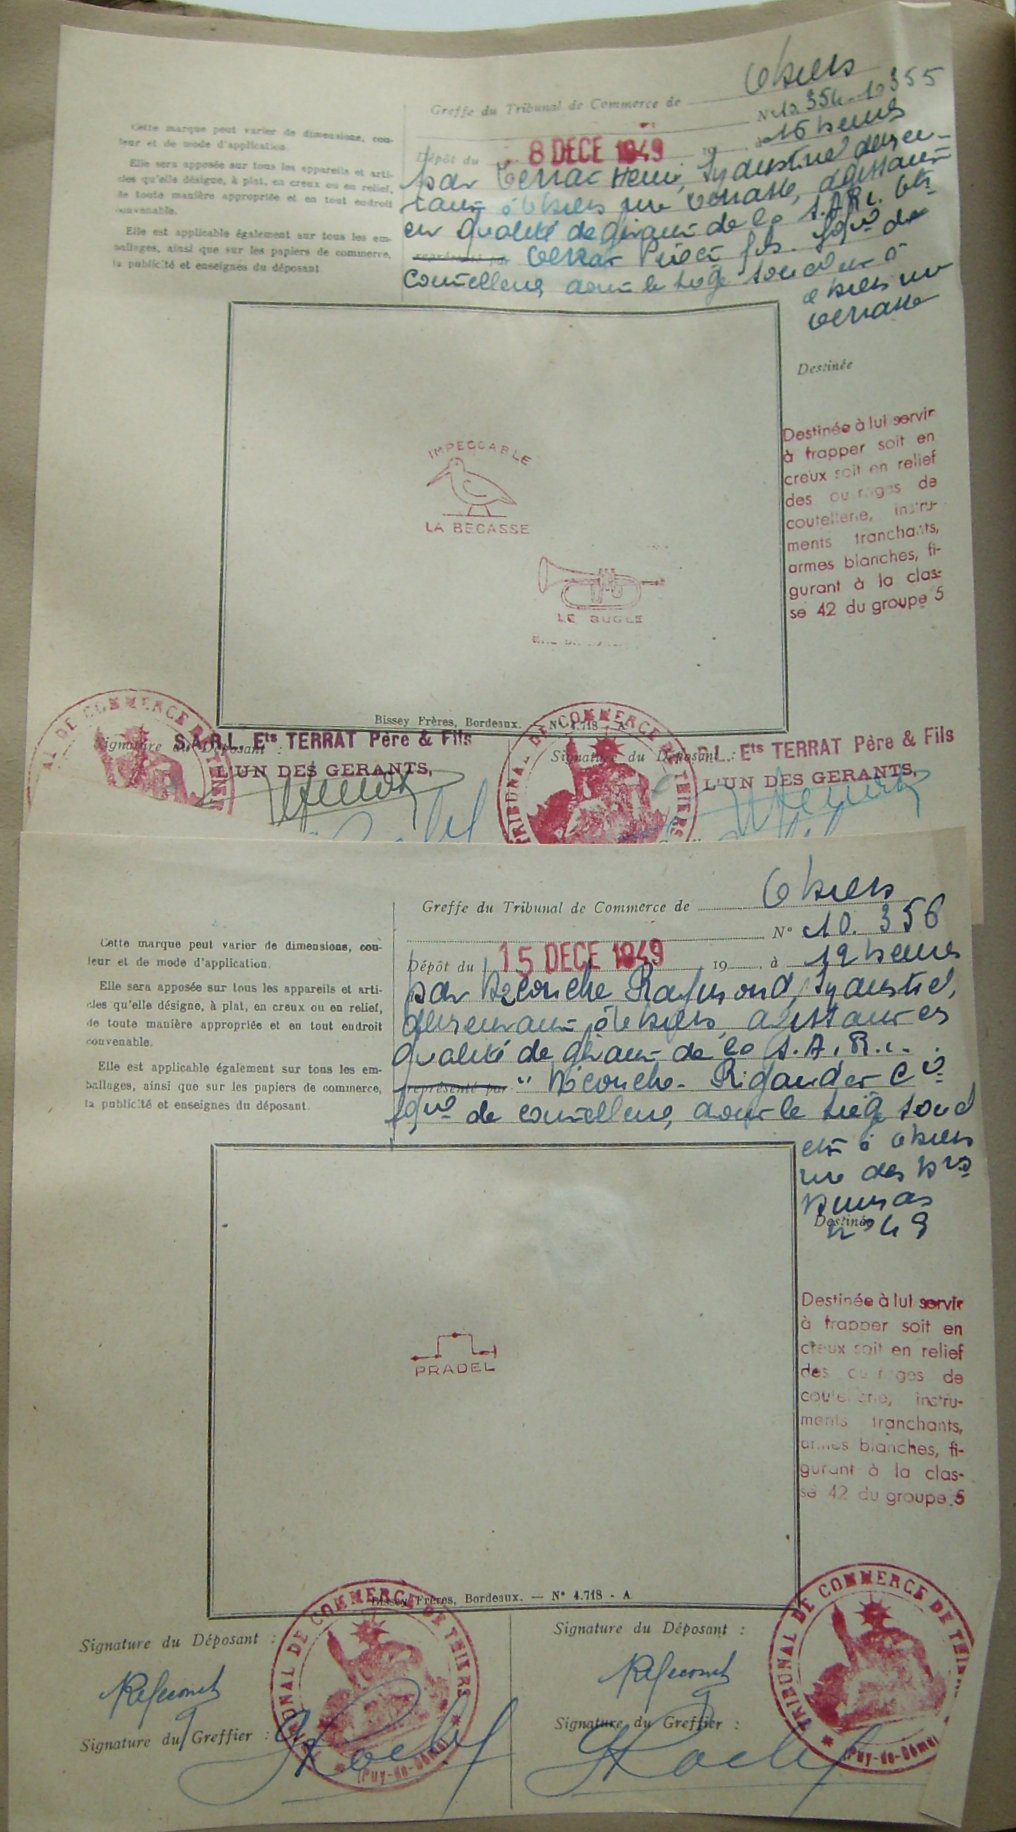 Greffe du Tribunal de Commerce de Thiers
N° 10 354-10 355
Cette marque peut varier de dimensions, cou-
leur et de mode d'application.
Elle sera apposée sur tous les appareils et arti-
cles qu'elle désigne, à plat, en creux ou en relief,
de toute manière appropriée et en tout endroit
convenable.
Elle est applicable également sur tous les em-
ballages, ainsi que sur les papiers de commerce,
la publicité et enseignes du déposant
Dépôt du 8 DECE 1949 19 à 16 heures
par Terrat Henri, Industriel demeu-
rant à Thiers rue Terrasse, agissant
en qualité de gérant de la S.A.R.L. Ets
représenté par Terrat Père et fils.
Coutellerie dont le siège social est à
Thiers rue
Terrasse
Destinée
Destinée à lui servir
à frapper soit en
creux soit en relief
des ouvrages de
coutellerie, instru-
ments tranchants,
armes blanches, fi-
gurant à la clas-
se 42 du groupe 5
IMPECCABLE
LA BECASSE
LE BUGLE
Bissey Frères, Bordeaux. — N° 4.718 - A
Signature du Déposant :
S.A.R.L. Ets TERRAT Père & Fils
L'UN DES GERANTS,
Signature du Déposant :
R.L. Ets TERRAT Père & Fils
L'UN DES GERANTS,
AL DE COMMERCE DE THIERS
TRIBUNAL DE COMMERCE DE THIERS
Greffe du Tribunal de Commerce de Thiers
N° 10. 356
Cette marque peut varier de dimensions, cou-
leur et de mode d'application.
Elle sera apposée sur tous les appareils et arti-
cles qu'elle désigne, à plat, en creux ou en relief,
de toute manière appropriée et en tout endroit
convenable.
Elle est applicable également sur tous les em-
ballages, ainsi que sur les papiers de commerce,
la publicité et enseignes du déposant.
Dépôt du 15 DECE 1949 19 , à 12 heures
par Raymond, Industriel,
demeurant à Thiers, agissant es
qualité de gérant de la S.A.R.L.
représenté par " Rigaudet Cie
de coutellerie, dont le siège social
est à Thiers
rue des
n° 49
Destinée
Destinée à lui servir
à frapper soit en
creux soit en relief
des ouvrages de
coutellerie, instru-
ments tranchants,
armes blanches, fi-
gurant à la clas-
se 42 du groupe 5
PRADEL
Bissey Frères, Bordeaux. — N° 4.718 - A
Signature du Déposant :
Signature du Déposant :
Signature du Greffier :
Signature du Greffier :
TRIBUNAL DE COMMERCE DE THIERS
(Puy-de-Dôme)
TRIBUNAL DE COMMERCE DE THIERS
(Puy-de-Dôme)